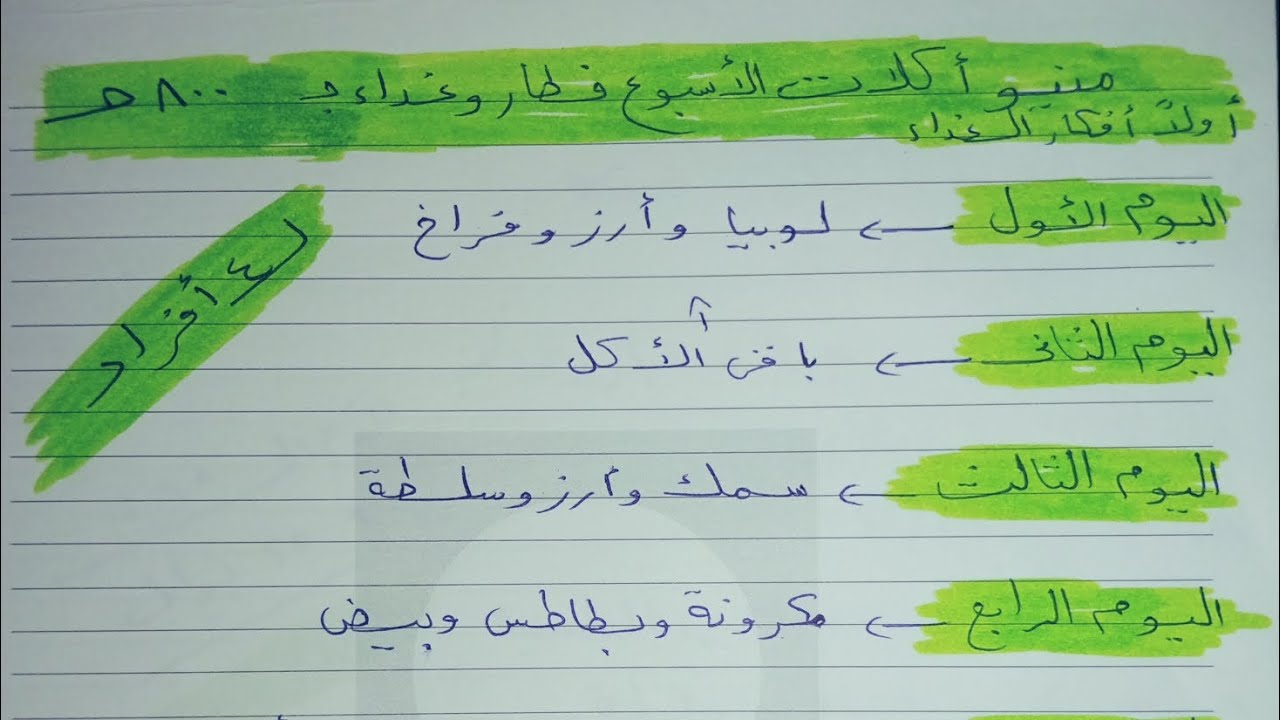 منيو أكلات الأسبوع فطار وغداء بـ ٨٠٠ جـ
أولاً أفكار الغداء
لـ ٤ أفراد
اليوم الأول ← لوبيا وأرز وفراخ
اليوم الثانى ← باقى الأكل
اليوم الثالث ← سمك وأرز وسلطة
اليوم الرابع ← مكرونة وبطاطس وبيض